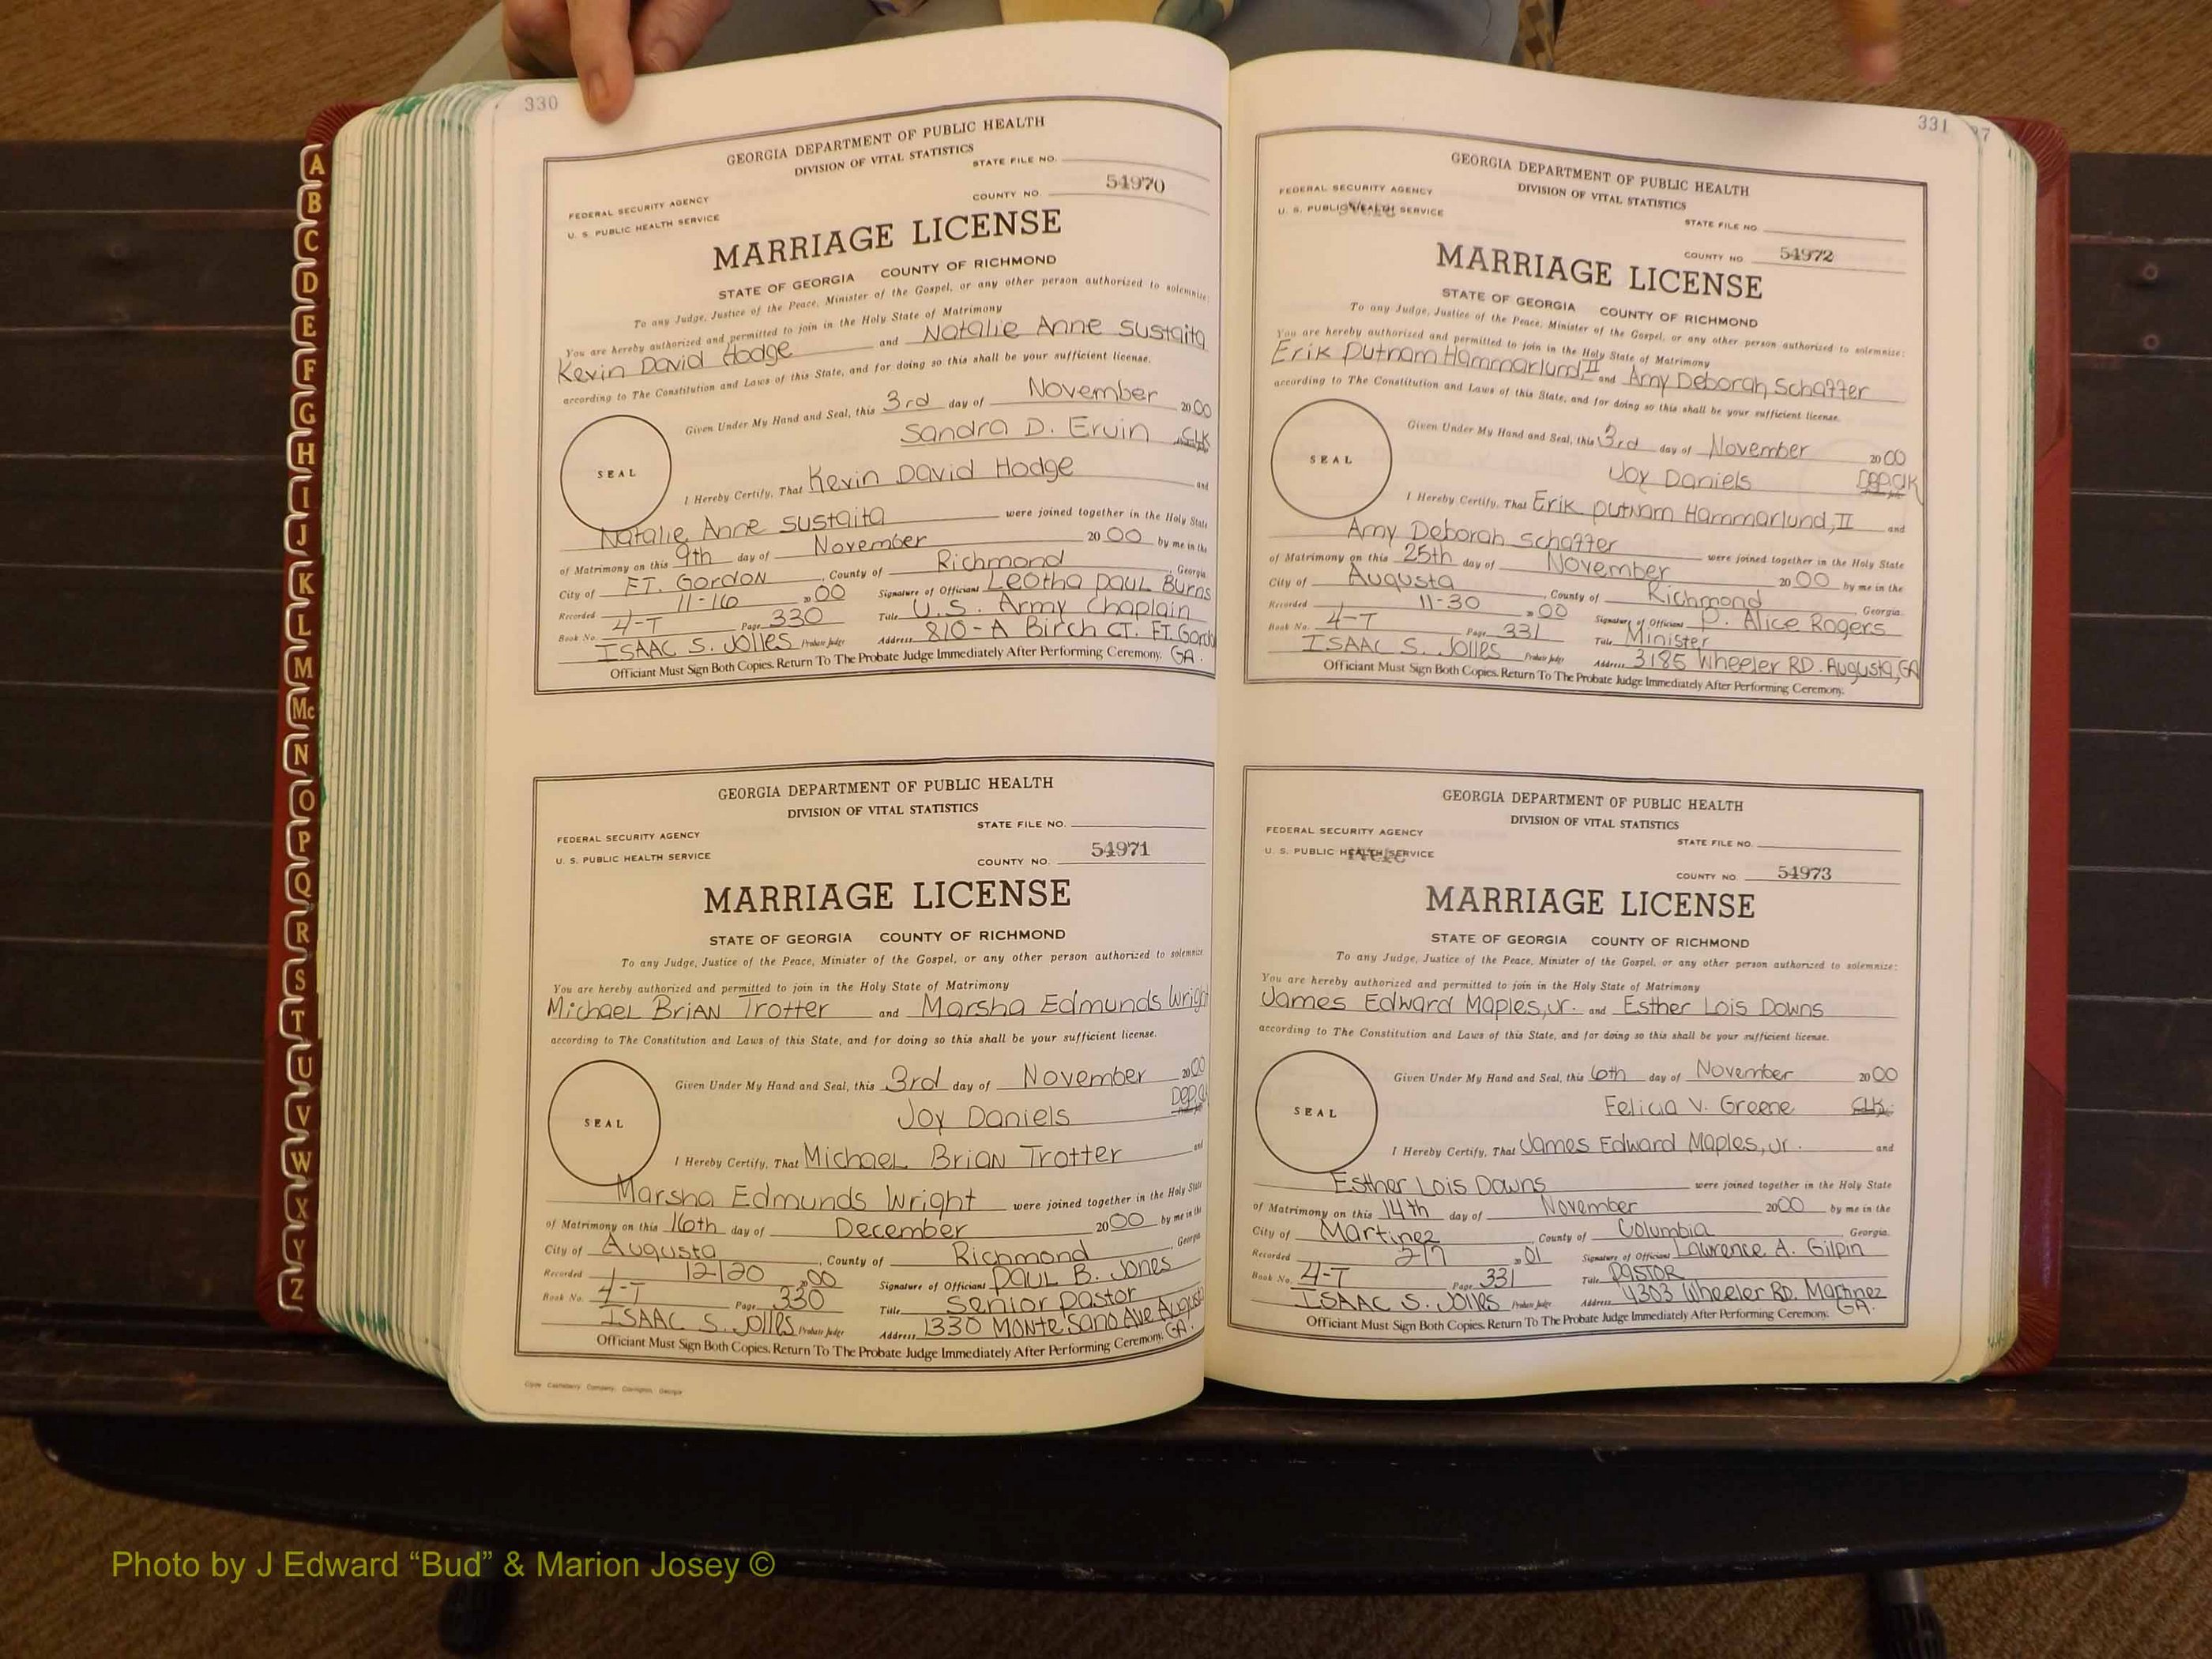 330
GEORGIA DEPARTMENT OF PUBLIC HEALTH
DIVISION OF VITAL STATISTICS
STATE FILE NO.
FEDERAL SECURITY AGENCY
COUNTY NO. 54970
U. S. PUBLIC HEALTH SERVICE
MARRIAGE LICENSE
STATE OF GEORGIA COUNTY OF RICHMOND
To any Judge, Justice of the Peace, Minister of the Gospel, or any other person authorized to solemnize:
You are hereby authorized and permitted to join in the Holy State of Matrimony
Kevin David Hodge and Natalie Anne Sustaita
according to The Constitution and Laws of this State, and for doing so this shall be your sufficient license.
Given Under My Hand and Seal, this 3rd day of November 2000
Sandra D. Ervin CLK
SEAL
I Hereby Certify, That Kevin David Hodge and
Natalie Anne Sustaita were joined together in the Holy State
of Matrimony on this 9th day of November 2000 by me in the
City of FT. Gordon, County of Richmond, Georgia
Recorded 11-16 2000 Signature of Official Leotha Paul Burns
Book No. 4-T Page 330 Title U.S. Army Chaplain
ISAAC S. Jolles Probate Judge Address 810-A Birch CT. FT. Gordon GA.
Officiant Must Sign Both Copies. Return To The Probate Judge Immediately After Performing Ceremony.
GEORGIA DEPARTMENT OF PUBLIC HEALTH
DIVISION OF VITAL STATISTICS
STATE FILE NO.
FEDERAL SECURITY AGENCY
COUNTY NO. 54971
U. S. PUBLIC HEALTH SERVICE
MARRIAGE LICENSE
STATE OF GEORGIA COUNTY OF RICHMOND
To any Judge, Justice of the Peace, Minister of the Gospel, or any other person authorized to solemnize
You are hereby authorized and permitted to join in the Holy State of Matrimony
Michael Brian Trotter and Marsha Edmunds Wright
according to The Constitution and Laws of this State, and for doing so this shall be your sufficient license.
Given Under My Hand and Seal, this 3rd day of November 2000
Joy Daniels Dep.Cl
SEAL
I Hereby Certify, That Michael Brian Trotter and
Marsha Edmunds Wright were joined together in the Holy State
of Matrimony on this 16th day of December 2000 by me in the
City of Augusta, County of Richmond, Georgia
Recorded 12/20 2000 Signature of Official Paul B. Jones
Book No. 4-T Page 330 Title Senior Pastor
ISAAC S. Jolles Probate Judge Address 1330 Monte Sano Ave Augusta GA.
Officiant Must Sign Both Copies. Return To The Probate Judge Immediately After Performing Ceremony.
Clyde Castleberry Company, Covington, Georgia
331
37
GEORGIA DEPARTMENT OF PUBLIC HEALTH
DIVISION OF VITAL STATISTICS
FEDERAL SECURITY AGENCY
U. S. PUBLIC HEALTH SERVICE
STATE FILE NO.
COUNTY NO. 54972
MARRIAGE LICENSE
STATE OF GEORGIA COUNTY OF RICHMOND
To any Judge, Justice of the Peace, Minister of the Gospel, or any other person authorized to solemnize:
You are hereby authorized and permitted to join in the Holy State of Matrimony
Erik Putnam Hammarlund, II and Amy Deborah Schaffer
according to The Constitution and Laws of this State, and for doing so this shall be your sufficient license.
Given Under My Hand and Seal, this 3rd day of November 2000
Joy Daniels Dep.Clk
SEAL
I Hereby Certify, That Erik Putnam Hammarlund, II and
Amy Deborah Schaffer were joined together in the Holy State
of Matrimony on this 25th day of November 2000 by me in the
City of Augusta, County of Richmond, Georgia.
Recorded 11-30 2000 Signature of Official P. Alice Rogers
Book No. 4-T Page 331 Title Minister
ISAAC S. Jolles Probate Judge Address 3185 Wheeler RD. Augusta, GA
Officiant Must Sign Both Copies. Return To The Probate Judge Immediately After Performing Ceremony.
GEORGIA DEPARTMENT OF PUBLIC HEALTH
DIVISION OF VITAL STATISTICS
FEDERAL SECURITY AGENCY
STATE FILE NO.
U. S. PUBLIC HEALTH SERVICE
COUNTY NO. 54973
MARRIAGE LICENSE
STATE OF GEORGIA COUNTY OF RICHMOND
To any Judge, Justice of the Peace, Minister of the Gospel, or any other person authorized to solemnize:
You are hereby authorized and permitted to join in the Holy State of Matrimony
James Edward Maples, Jr. and Esther Lois Downs
according to The Constitution and Laws of this State, and for doing so this shall be your sufficient license.
Given Under My Hand and Seal, this 6th day of November 2000
Felicia V. Greene CLK
SEAL
I Hereby Certify, That James Edward Maples, Jr. and
Esther Lois Downs were joined together in the Holy State
of Matrimony on this 14th day of November 2000 by me in the
City of Martinez, County of Columbia, Georgia.
Recorded 2-7 2001 Signature of Official Lawrence A. Gilpin
Book No. 4-T Page 331 Title Pastor
ISAAC S. Jolles Probate Judge Address 4303 Wheeler RD. Martinez GA.
Officiant Must Sign Both Copies. Return To The Probate Judge Immediately After Performing Ceremony.
A
B
C
D
E
F
G
H
I
J
K
L
M
Mc
N
O
P
Q
R
S
T
U
V
W
X
Y
Z
Photo by J Edward “Bud” & Marion Josey ©